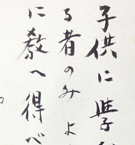 子供に學
る者のみよ
に教へ得べ